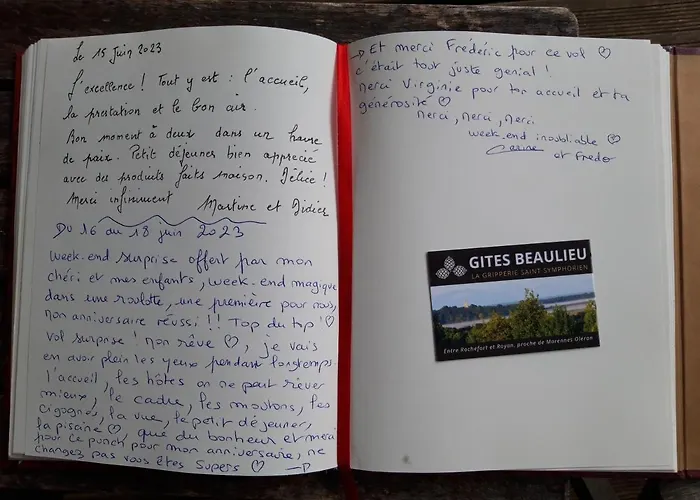 Le 15 Juin 2023
L'excellence ! Tout y est : l'accueil,
la prestation et le bon air.
Bon moment à deux dans un havre
de paix. Petit déjeunes bien apprécié
avec des produits faits maison. Délice !
Merci infiniment Martine et Didier
Du 16 au 18 juin 2023
week-end surprise offert par mon
chéri et mes enfants, week-end magique
dans une roulotte, une première pour nous,
mon anniversaire réussi !!! Top du top ! ♡
vol surprise ! mon rêve ♡, je vais
en avoir plein les yeux pendant longtemps
l'accueil, les hôtes on ne peut rêver
mieux, le cadre, les moutons, les
cigognes, la vue, le petit déjeuner,
la piscine ♡ que du bonheur et merci
pour ce punch pour mon anniversaire, ne
changez pas vous êtes supers ♡ →
→ Et merci Frédéric pour ce vol ♡
c'était tout juste genial !
Merci Virginie pour ton accueil et ta
générosité ♡
Merci, merci, merci
week-end inoubliable ♡
et Fredo
GITES BEAULIEU
LA GRIPPERIE SAINT SYMPHORIEN
Entre Rochefort et Royan, proche de Marennes Oléron